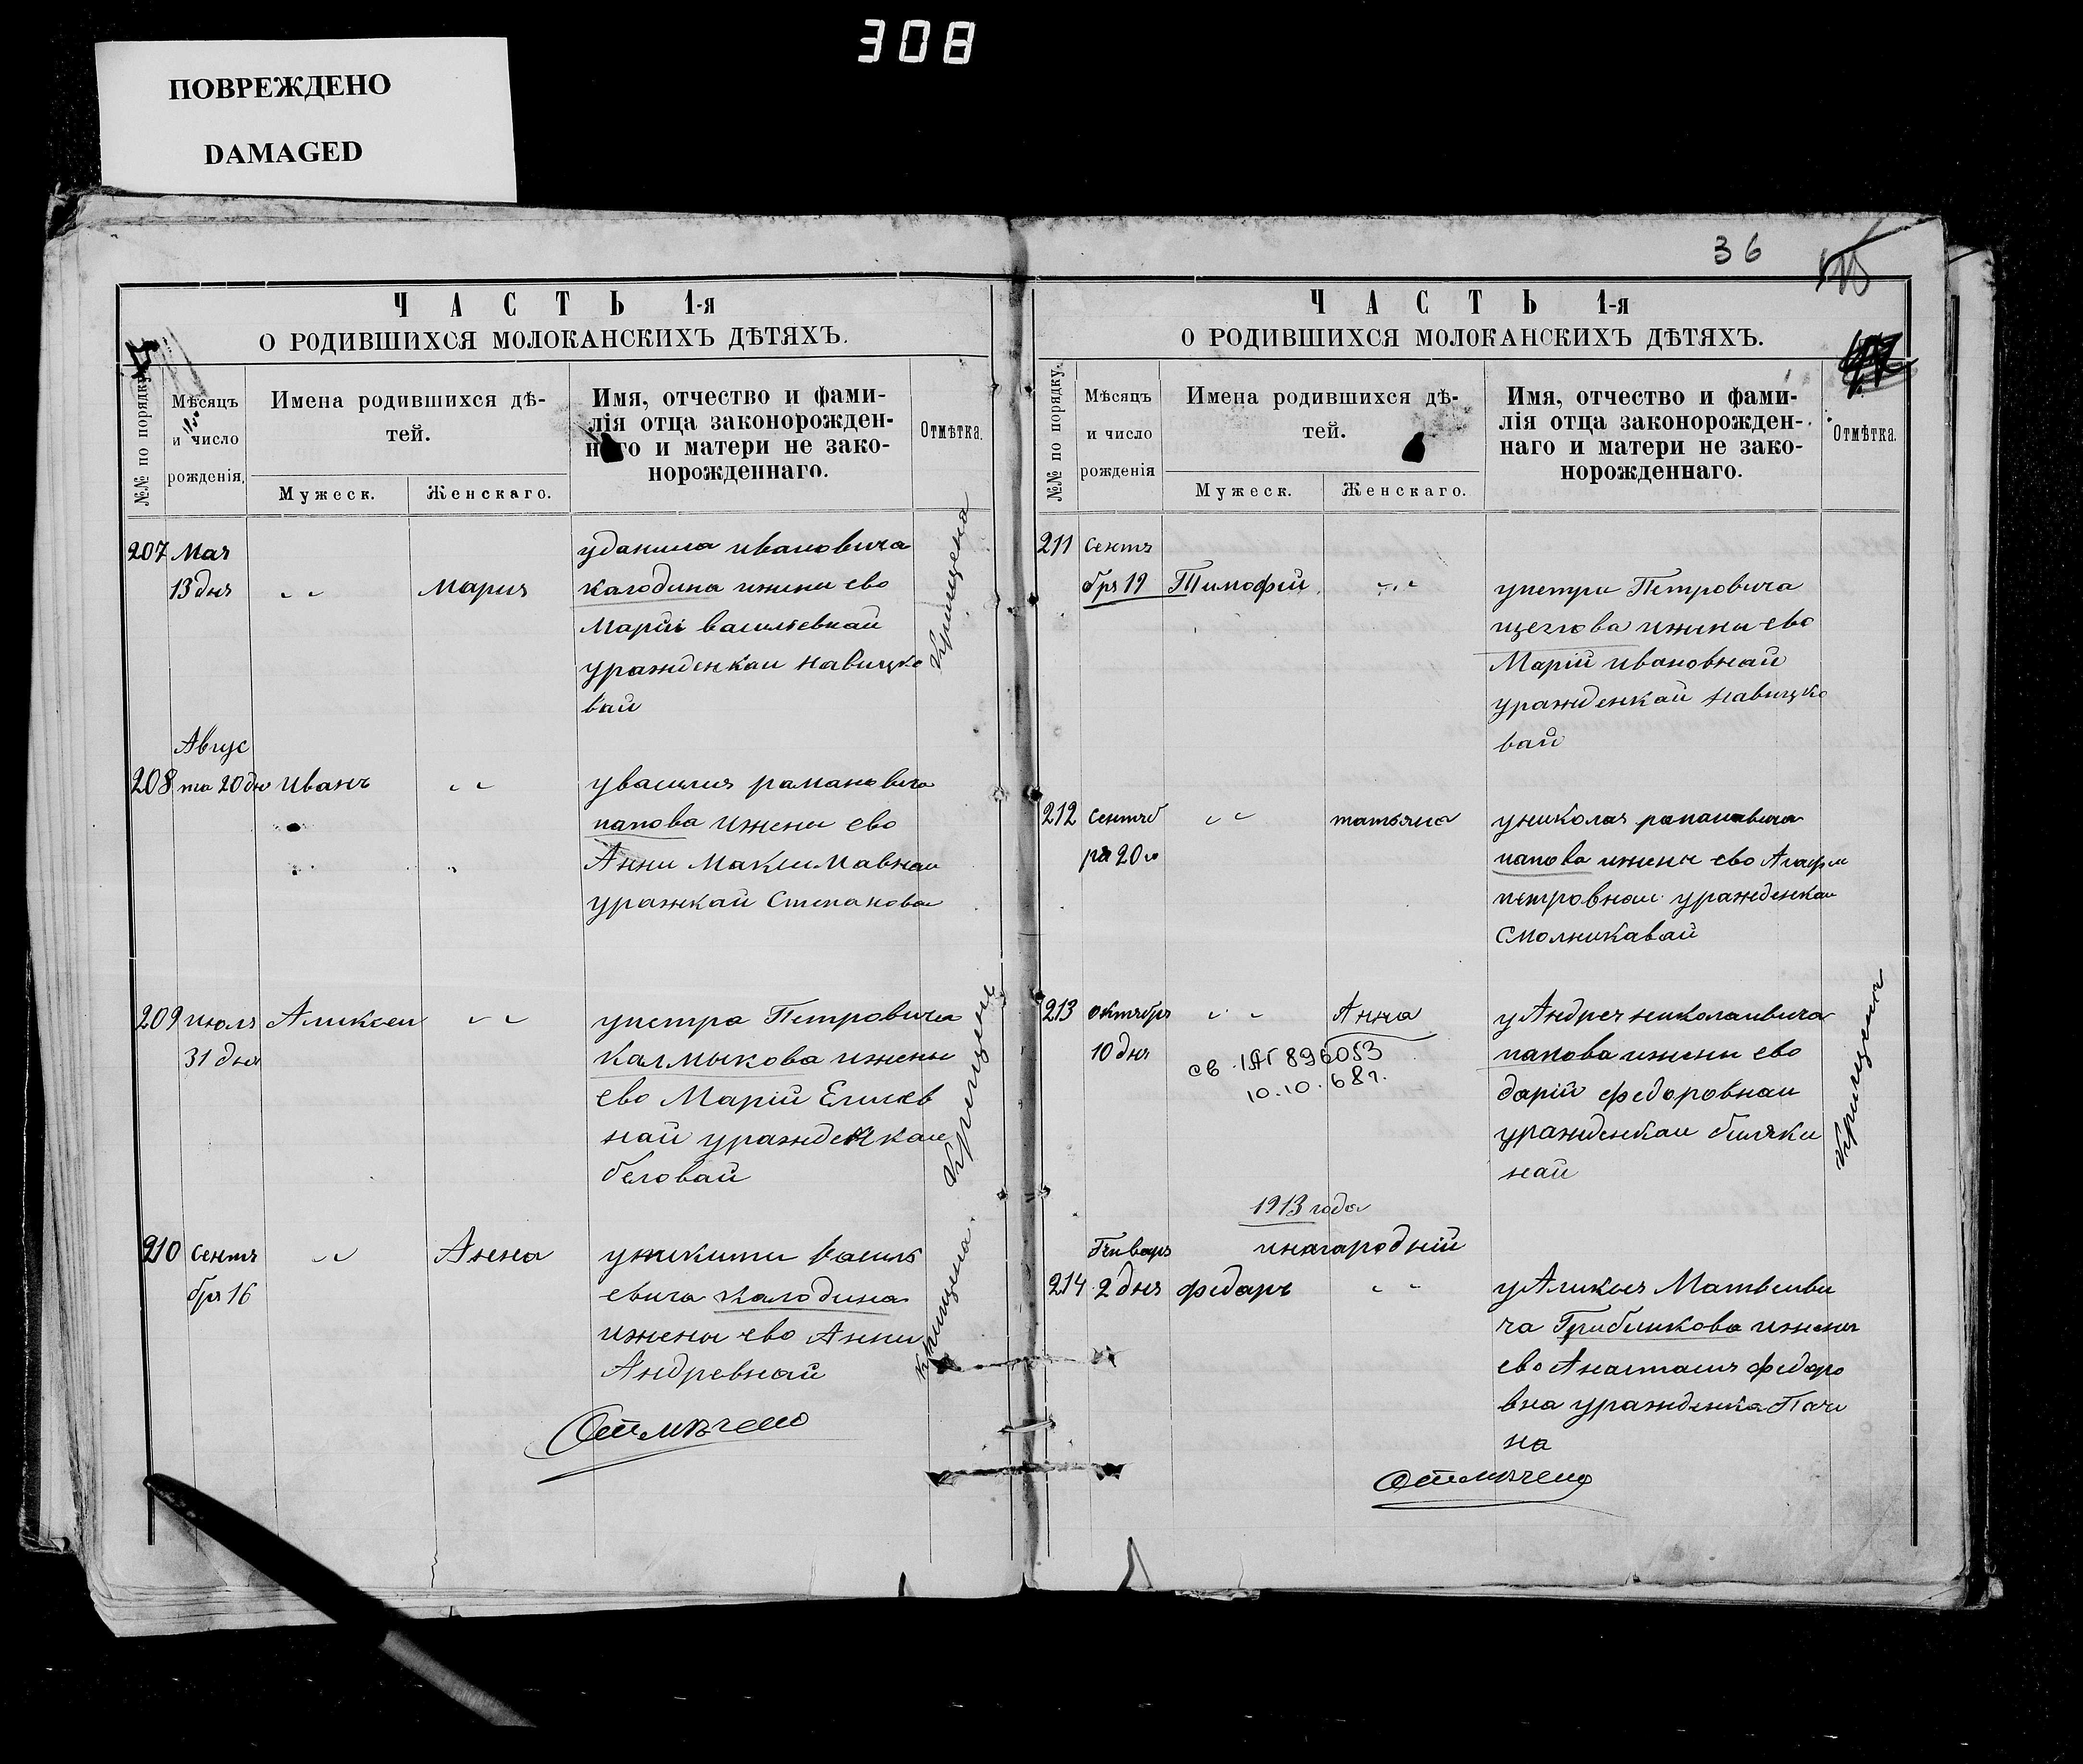 308
ПОВРЕЖДЕНО
DAMAGED
ЧАСТЬ 1-я
О РОДИВШИХСЯ МОЛОКАНСКИХЪ ДѢТЯХЪ.
№№ по порядку.
Мѣсяцъ
и число
рожденія.
Имена родившихся дѣ-
тей.
Мужеск.
Женскаго.
Имя, отчество и фами-
лія отца законорожден-
наго и матери не зако-
норожденнаго.
Отмѣтка.
207 Мая
13 дня " " Мария
уданила ивановича
калодина ижины ево
Марій василевнай
уражденкаи навицко
вай
Крищена
Авгус
208 та 20 дн иванъ " "
увасилия рамановича
папова ижены ево
Анни Максимавнаи
уражкай Степанова
209 июля Аликсеи " "
31 дня
упетра Петровича
Калмыкова ижены
ево Марій Елисев
най уражденкаи
беловай
Крищенъ
210 сентя " " Анна
бря 16
уникити василь
евича калодина
ижены ево Анны
Андревнай
Крищина
Отмѣчено
36
ЧАСТЬ 1-я
О РОДИВШИХСЯ МОЛОКАНСКИХЪ ДѢТЯХЪ.
№№ по порядку.
Мѣсяцъ
и число
рожденія
Имена родившихся дѣ-
тей.
Мужеск.
Женскаго.
Имя, отчество и фами-
лія отца законорожден-
наго и матери не зако-
норожденнаго.
Отмѣтка.
211 сентя
бря 19 Тимофій " "
упетра Петровича
щеглова ижины ево
Марій ивановнай
уражденкай навицко
вай
212 сентяб " " татьяна
ря 20 го
униколая рапанавича
папова ижены ево Агафи
петровнаи уражденкаи
Смолникавай
213 октября " " Анна
10 дня
св. IАГ 896053
10.10.68г.
уАндрея николаивича
папова ижены ево
дарій федоровнаи
уражденкаи биляки
най
Крищена
1913 года
Генваря инагародній
214 2 дня федаръ " "
уАликся Матвеиви
ча Грибникова ижены
ево Анастасия федоро
вна уражденка Пачи
на
Отмѣчено